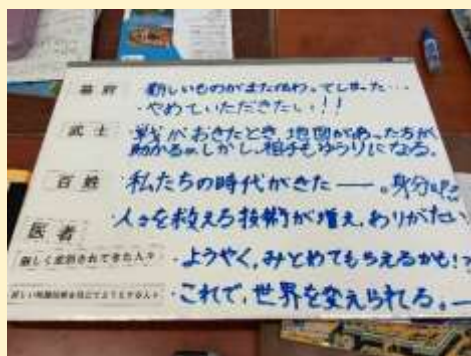 幕府 ・新しいものがまた伝わってしまった…
・やめていただきたい!!
武士 ・戦がおきたとき、地図があった方が
助かる。しかし、相手もゆうりになる。
百姓 ・私たちの時代がきた――。身分
医者 人々を救える技術が増え、ありがたい
厳しく差別されてきた人々 ・ようやく、みとめてもらえるかも!?
新しい時代を ・これで、世界を変えられる。―